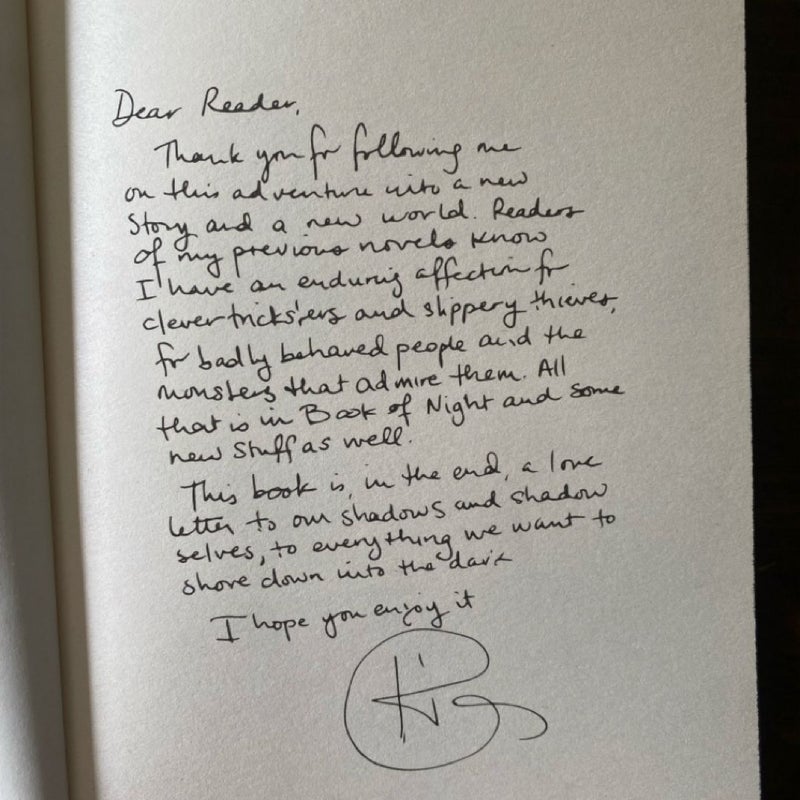 Dear Reader,
Thank you for following me
on this adventure into a new
Story and a new world. Readers
of my previous novels know
I have an enduring affection for
clever tricksters and slippery thieves,
for badly behaved people and the
monsters that admire them. All
that is in Book of Night and some
new stuff as well.
This book is, in the end, a love
letter to our shadows and shadow
selves, to everything we want to
shove down into the dark
I hope you enjoy it